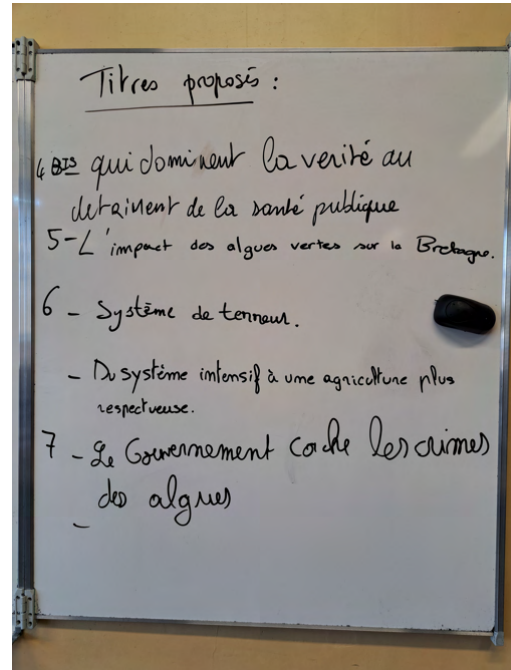 Titres proposés :
4 BIS qui dominent la verité au
detriment de la santé publique
5-L'impact des algues vertes sur la Bretagne.
6 - Système de terreur.
- Du système intensif à une agriculture plus
respectueuse.
7 - Le Gouvernement cache les crimes
des algues
-